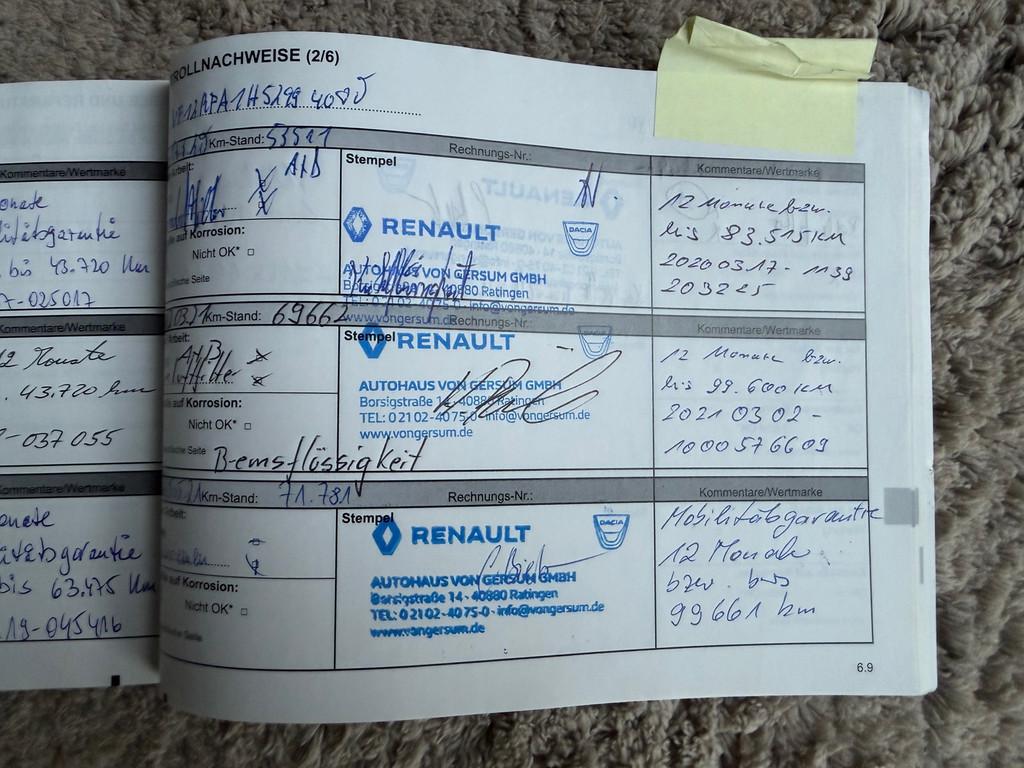 Kommentare/Wertmarke
bis 43.720 km
-025017
12 Monate
43.720 km
-037055
Kommentare/Wertmarke
bis 63.475 km
19-045416
ROLLNACHWEISE (2/6)
Km-Stand: 53511
Rechnungs-Nr.:
Kommentare/Wertmarke
Stempel
auf Korrosion:
Nicht OK*
Seite
RENAULT
DACIA
AUTOHAUS VON GERSUM GMBH
40880 Ratingen
TEL: 0 21 02 - 40 75-0 - info@vongersum.de
www.vongersum.de
12 Monate bzw.
bis 83.515 km
20200317-1139
203225
Km-Stand: 69662
Rechnungs-Nr.:
Kommentare/Wertmarke
Stempel
auf Korrosion:
Nicht OK*
Seite
Bremsflüssigkeit
RENAULT
AUTOHAUS VON GERSUM GMBH
Borsigstraße 14 - 40880 Ratingen
TEL: 0 21 02 - 40 75-0 - info@vongersum.de
www.vongersum.de
12 Monate bzw.
bis 99.600 km
2021 03 02 -
1000576609
Km-Stand: 71.781
Rechnungs-Nr.:
Kommentare/Wertmarke
Stempel
auf Korrosion:
Nicht OK*
Seite
RENAULT
DACIA
AUTOHAUS VON GERSUM GMBH
Borsigstraße 14 - 40880 Ratingen
TEL: 0 21 02 - 40 75-0 - info@vongersum.de
www.vongersum.de
Mobilitätsgarantie
12 Monate
bzw. bis
99661 km
6.9